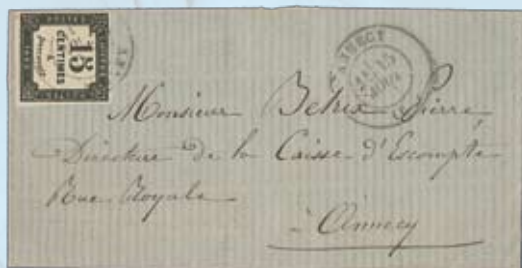 15
CENTIMES
à
percevoir
ANNECY
Monsieur Betrix Pierre
Directeur de la Caisse d'Escompte
Rue Royale
à Annecy